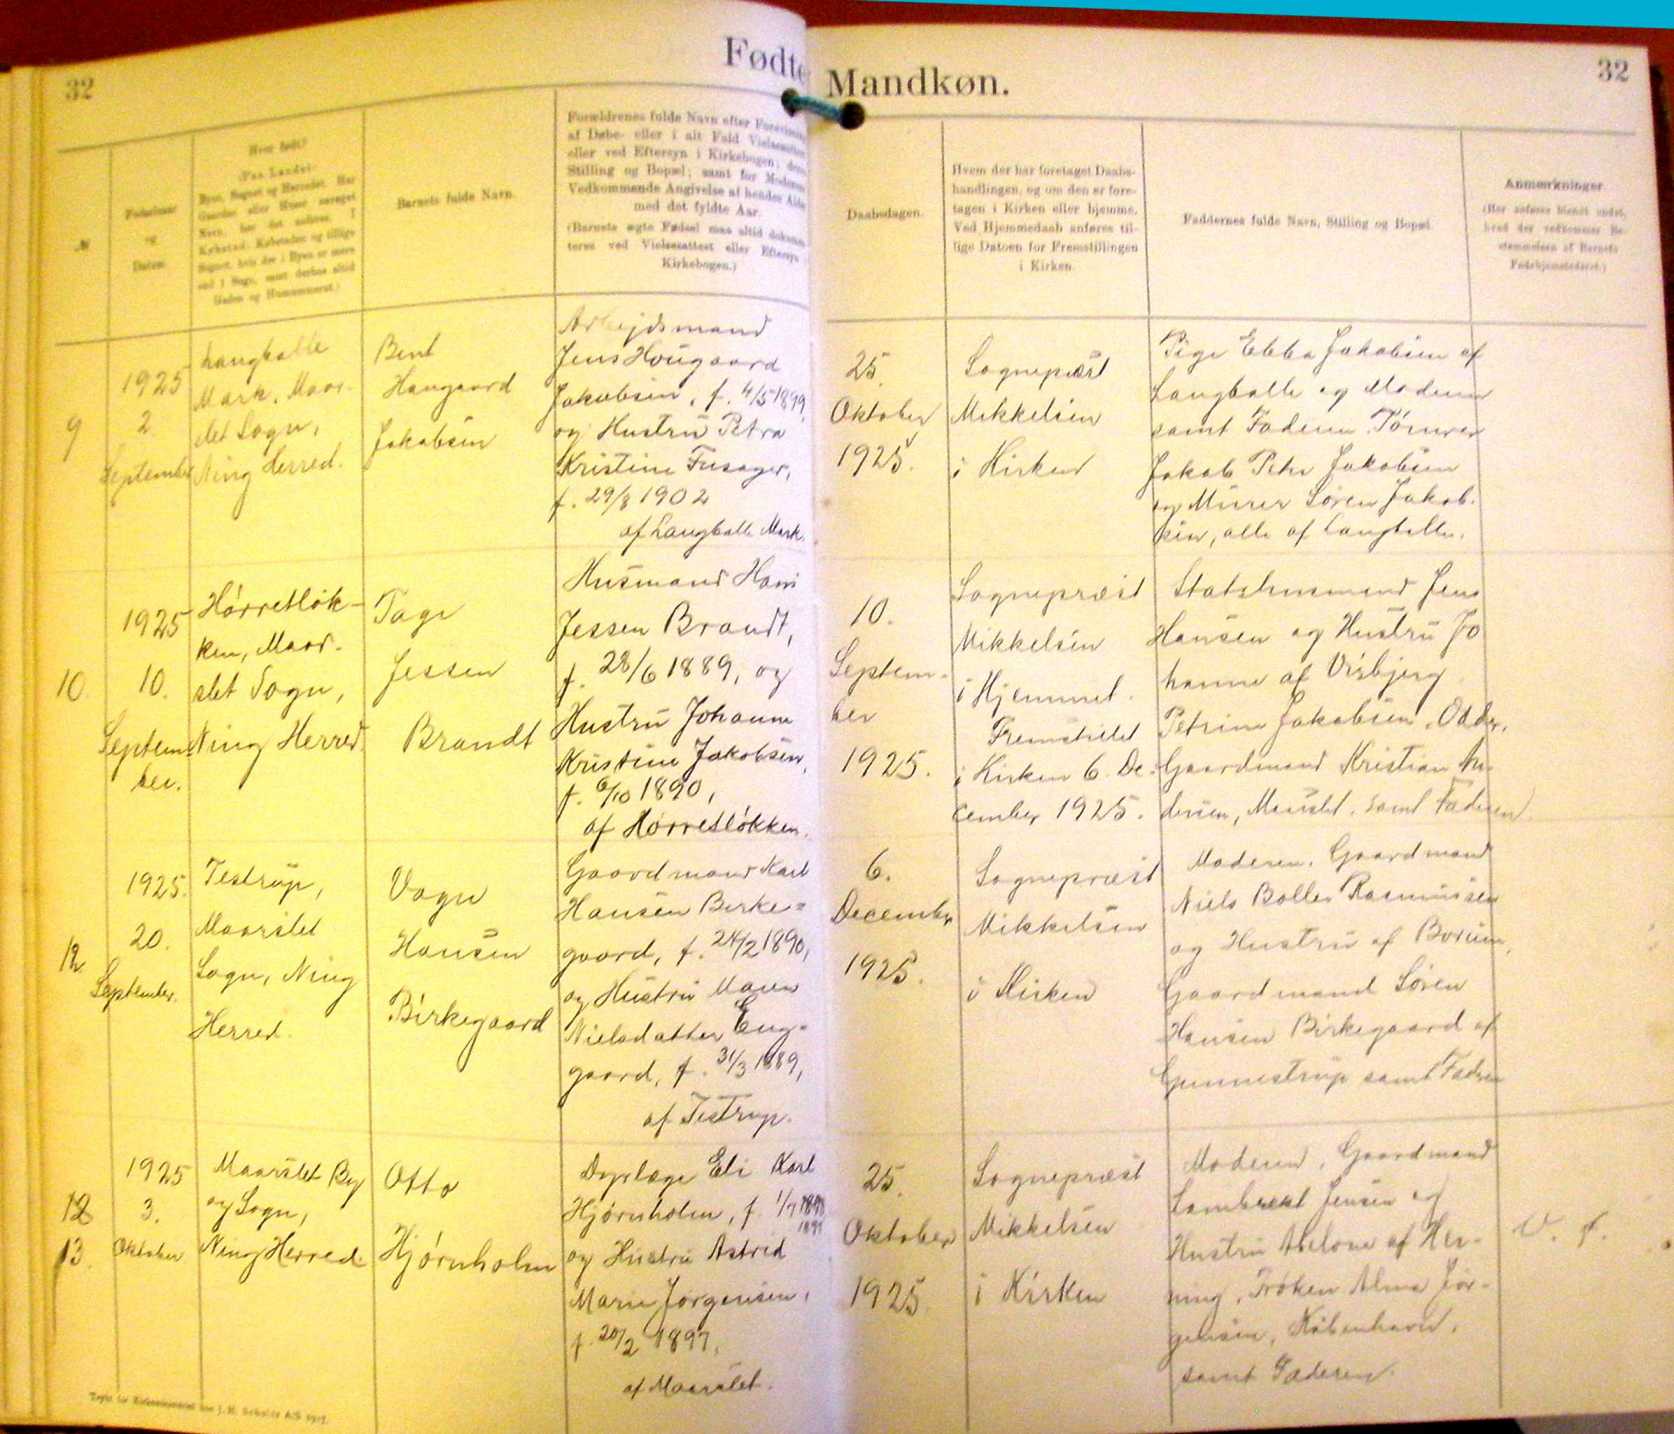 32
Fødte
Mandkøn.
32
№
Fødselsaar
og
Datum.
Hvor født?
(Paa Landet:
Byen, Sognet og Herredet. Har
Gaarden eller Huset særeget
Navn, bør det anføres. I
Købstad: Købstaden og tillige
Sognet, hvis der i Byen er mere
end 1 Sogn, samt derhos altid
Gaden og Husnummeret.)
Barnets fulde Navn.
Forældrenes fulde Navn efter
af Døbe- eller i alt Fald
eller ved Eftersyn i Kirkebogen; deres
Stilling og Bopæl; samt for Moderens
Vedkommende Angivelse af hendes Alder
med det fyldte Aar.
(Barnets ægte Fødsel maa altid
teres ved Vielsesattest eller Eftersyn
Kirkebogen.)
Daabsdagen.
Hvem der har foretaget Daabs-
handlingen, og om den er fore-
tagen i Kirken eller hjemme.
Ved Hjemmedaab anføres til-
lige Datoen for Fremstillingen
i Kirken.
Faddernes fulde Navn, Stilling og Bopæl.
Anmærkninger
(Her anføres blandt andet,
hvad der vedkommer Be-
stemmelsen af Barnets
Fødehjemstedsret.)
9
1925
2.
September
Langballe
Mark, Maar-
slet Sogn,
Ning Herred.
Bent
Hougaard
Jakobsen
Arbejdsmand
Jens Hougaard
Jakobsen, f. 4/5 1899,
og Hustru Petra
Kristine Fusager,
f. 29/8 1902
af Langballe Mark.
25.
Oktober
1925.
Sognepræst
Mikkelsen
i Kirken
Pige Ebba Jakobsen af
Langballe og Moderen
samt Faderen. Tømrer
Jakob Peter Jakobsen
og Murer Søren Jakob-
sen, alle af Langballe.
10.
1925
10.
Septem-
ber.
Hørretløk-
ken, Maar-
slet Sogn,
Ning Herred.
Tage
Jessen
Brandt
Husmand Hans
Jessen Brandt,
f. 28/6 1889, og
Hustru Johanne
Kristine Jakobsen,
f. 6/10 1890,
af Hørretløkken.
10.
Septem-
ber
1925.
Sognepræst
Mikkelsen
i Hjemmet.
Fremstillet
i Kirken 6. De-
cember 1925.
Statshusmand Jens
Hansen og Hustru Jo
hanne af Visbjerg
Petrine Jakobsen, Odder,
Gaardmand Kristian An-
dersen, samt Faderen.
12
1925.
20.
September.
Testrup,
Maarslet
Sogn, Ning
Herred.
Vagn
Hansen
Birkegaard
Gaardmand Karl
Hansen Birke=
gaard, f. 24/2 1890,
og Hustru Maren
Nielsdatter Eng=
gaard, f. 31/3 1889,
af Testrup.
6.
December
1925.
Sognepræst
Mikkelsen
i Kirken
Moderen. Gaardmand
Niels Balles Rasmussen
og Hustru af Borum,
Gaardmand Søren
Hansen Birkegaard af
Gunnestrup samt Faderen
12
13.
1925
3.
Oktober
Maarslet By
og Sogn,
Ning Herred.
Otto
Hjørnholm
Dyrlæge Eli Karl
Hjørnholm, f. 1/7
og Hustru Astrid
Marie Jørgensen,
f. 20/2 1897,
af Maarslet.
25.
Oktober
1925.
Sognepræst
Mikkelsen
i Kirken
Moderen, Gaardmand
Lambrekt Jensen og
Hustru Abelone af Her-
ning. Frøken Alma Jør-
gensen, København,
samt Faderen.
V. f.